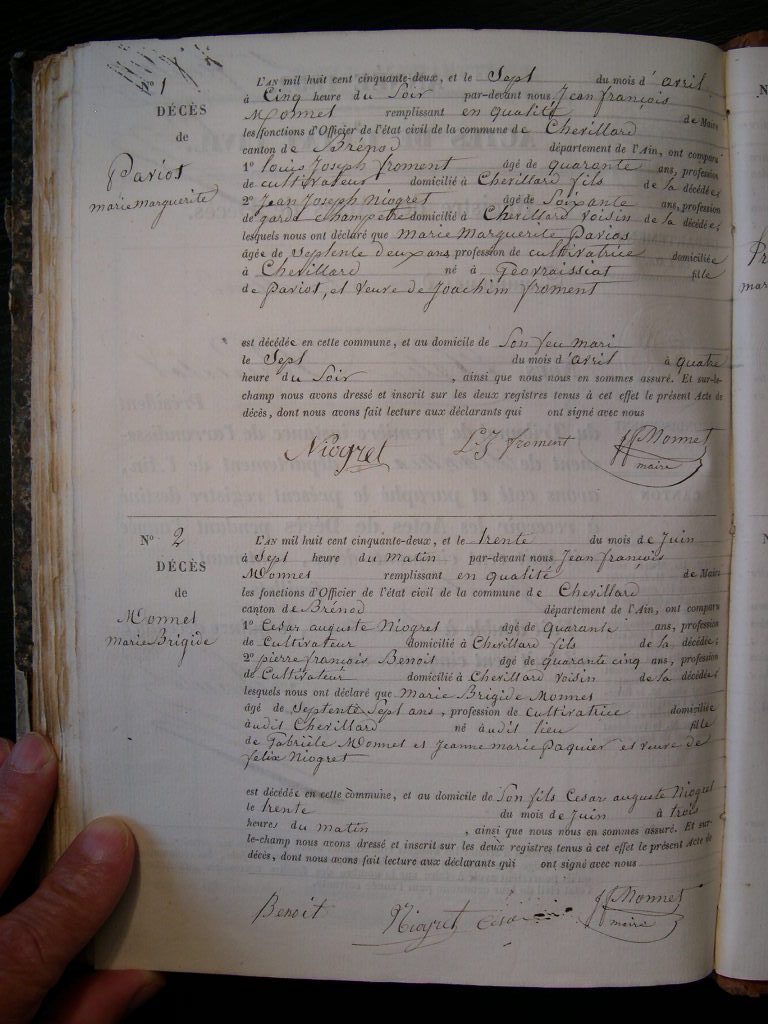 N° 1
DÉCÈS
de
Pariot
marie marguerite
L'AN mil huit cent cinquante-deux, et le Sept du mois d'avril
à Cinq heure du Soir par-devant nous Jean françois
Monnet remplissant en qualité de Maire
les fonctions d'Officier de l'état civil de la commune de Chevillard
canton de Brénod département de l'Ain, ont comparu
1° louis Joseph froment âgé de quarante ans, profession
de cultivateur domicilié à Chevillard fils de la décédée;
2° Jean Joseph Niogret âgé de Soixante ans, profession
de garde champetre domicilié à Chevillard voisin de la décédée;
lesquels nous ont déclaré que marie Marguerite Pariot
âgée de Septente deux ans, profession de cultivatrice domiciliée
à Chevillard né à Géovraissiat fille
de Pariot, et veuve de Joachim froment
est décédée en cette commune, et au domicile de Son feu mari
le Sept du mois d'avril à quatre
heure du Soir , ainsi que nous nous en sommes assuré. Et sur-le-
champ nous avons dressé et inscrit sur les deux registres tenus à cet effet le présent Acte de
décès, dont nous avons fait lecture aux déclarants qui ont signé avec nous
Niogret L J froment JF Monnet
maire
N° 2
DÉCÈS
de
Monnet
Marie Brigide
L'AN mil huit cent cinquante-deux, et le trente du mois de Juin
à Sept heure du matin par-devant nous Jean françois
Monnet remplissant en qualité de Maire
les fonctions d'Officier de l'état civil de la commune de Chevillard
canton de Brénod département de l'Ain, ont comparu
1° Cesar auguste Niogret âgé de Quarante ans, profession
de Cultivateur domicilié à Chevillard fils de la décédée;
2° pierre françois Benoit âgé de quarante cinq ans, profession
de Cultivateur domicilié à Chevillard voisin de la décédée;
lesquels nous ont déclaré que Marie Brigide Monnet
âgé de Septente Sept ans, profession de cultivatrice domiciliée
audit Chevillard né audit lieu fille
de Gabrièle Monnet et Jeanne marie Paquier et veuve de
felix Niogret
est décédée en cette commune, et au domicile de Son fils Cesar auguste Niogret
le trente du mois de Juin à trois
heures du matin , ainsi que nous nous en sommes assuré. Et sur-
le-champ nous avons dressé et inscrit sur les deux registres tenus à cet effet le présent Acte de
décès, dont nous avons fait lecture aux déclarants qui ont signé avec nous
Benoit Niogret César JF Monnet
maire